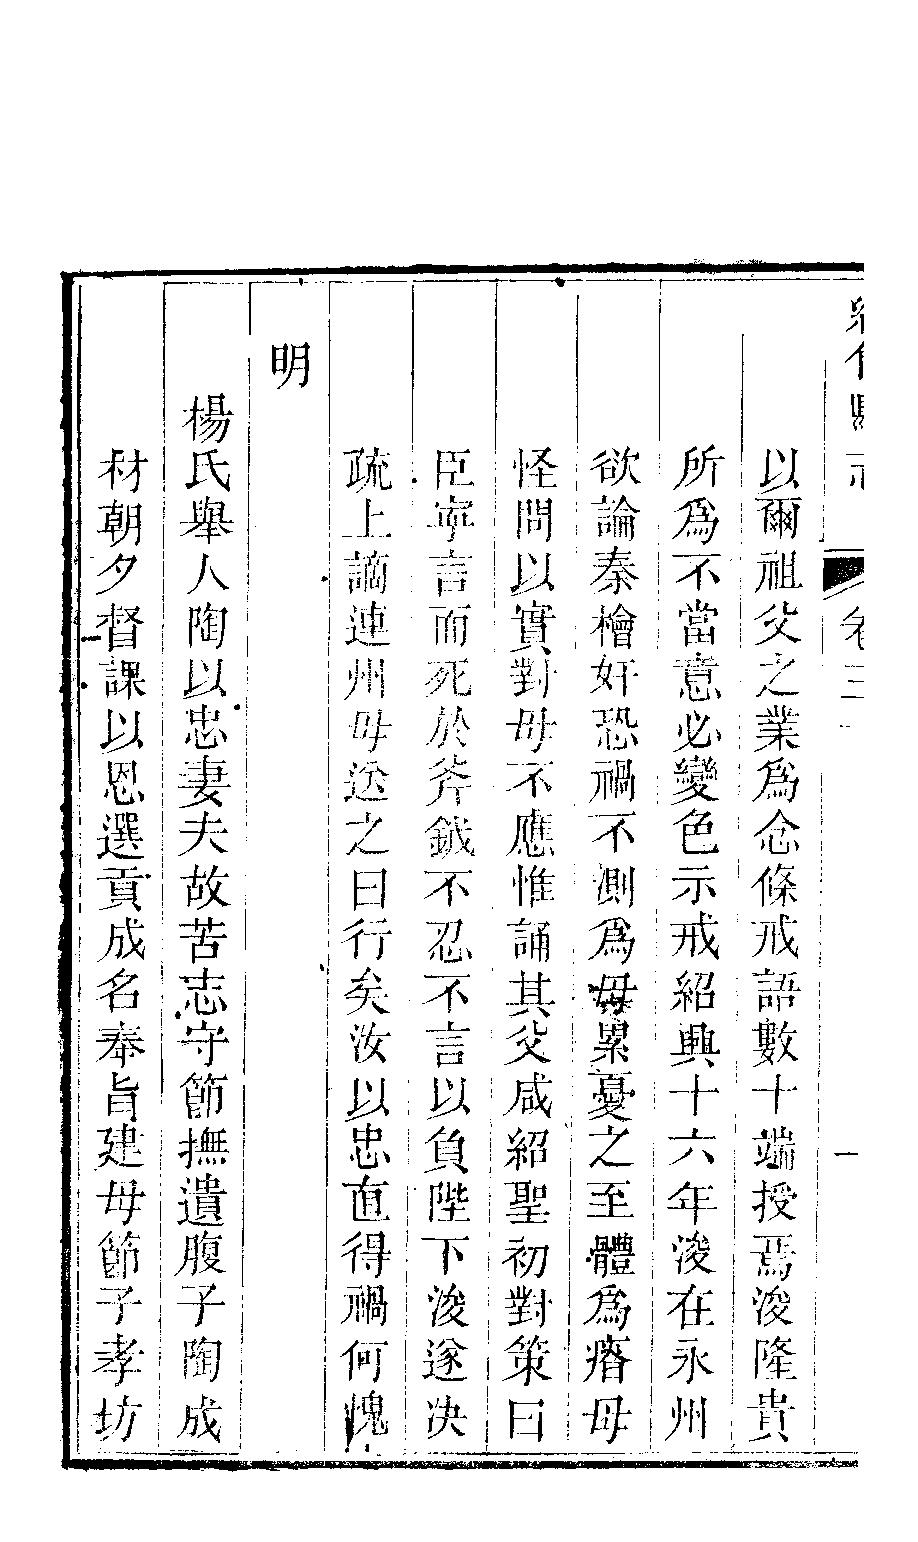 卷三
以爾祖父之業為念條戒語數十端授焉浚隆貴
所為不當意必變色示戒紹興十六年浚在永州
欲論秦檜奸恐禍不測為母累憂之至體為瘠母
怪問以實對母不應惟誦其父咸紹聖初對策曰
臣寧言而死於斧鉞不忍不言以負陛下浚遂决
疏上謫連州母送之曰行矣汝以忠直得禍何愧
明
楊氏舉人陶以忠妻夫故苦志守節撫遺腹子陶成
材朝夕督課以恩選貢成名奉旨建母節子孝坊